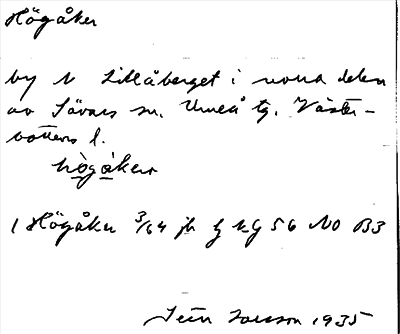 Högåker
by N Lillåberget i norra delen
av Sävars sn. Umeå tg. Väster-
bottens l.
hògàker
1 Högåker 3/64 jb kg 56 NO B3
1935